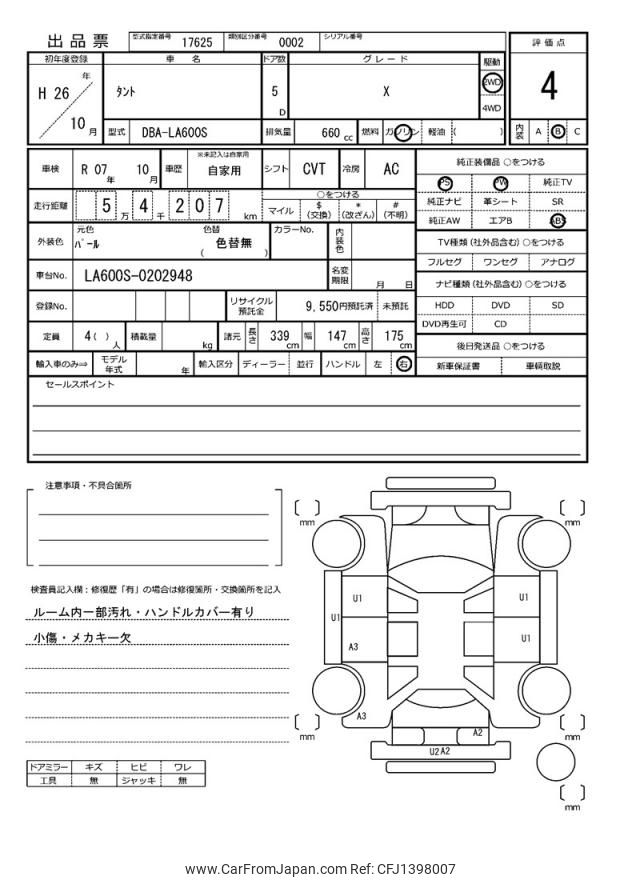 出品票 型式指定番号 17625 類別区分番号 0002 シリアル番号
評価点
4
内装 A B C
初年度登録 車名 ドア数 グレード 駆動
H 26 年 10 月
タント 5 D X 2WD 4WD
型式 DBA-LA600S 排気量 660 cc 燃料 ガソリン 軽油 ( )
車検 R 07 年 10 月 車歴 ※未記入は自家用 自家用 シフト CVT 冷房 AC
走行距離 5 万 4 千 2 0 7 km
○をつける
マイル $ (交換) * (改ざん) # (不明)
外装色 元色 パール 色替 色替無 ( ) カラーNo. 内装色
車台No. LA600S-0202948 名変期限 月 日
登録No. リサイクル預託金 9,550円預託済 未預託
定員 4 ( ) 人 積載量 kg 諸元 長さ 339 cm 幅 147 cm 高さ 175 cm
輸入車のみ⇒ モデル年式 年 輸入区分 ディーラー 並行 ハンドル 左 右
純正装備品 ○をつける
PS PW 純正TV
純正ナビ 革シート SR
純正AW エアB ABS
TV種類 (社外品含む) ○をつける
フルセグ ワンセグ アナログ
ナビ種類 (社外品含む) ○をつける
HDD DVD SD
DVD再生可 CD
後日発送品 ○をつける
新車保証書 車輌取説
セールスポイント
注意事項・不具合箇所
検査員記入欄：修復歴「有」の場合は修復箇所・交換箇所を記入
ルーム内一部汚れ・ハンドルカバー有り
小傷・メカキー欠
ドアミラー キズ ヒビ ワレ
工具 無 ジャッキ 無
mm mm
U1 U1
U1 U1
A3
A3 A2
U2 A2
mm mm
mm
www.CarFromJapan.com Ref: CFJ1398007